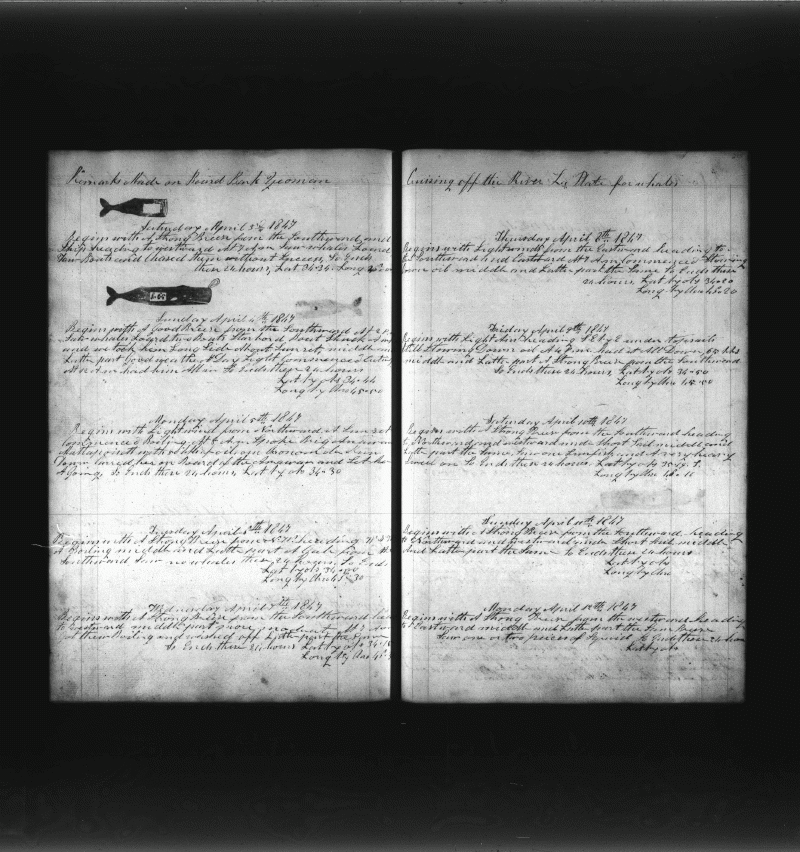 Remarks Made on Board Bark Yeoman
Saturday April 3th 1847
Begins with A Strong Breeze from the Southward and
Ship heading to westward At 7 Am Saw whales Lowered
Four Boats and Chased them without Success So Ends
these 24 hours, Lat 34-34. Long
Sunday April 4th 1847
Begins with A Good Breeze from the Southward At 2 P
Saw whales Lowerd the Boats Starbord Boat Struck A
and we took him Long Side About Sun set, middle and
Latter part Good weather At Day Light Commenced Cutting
At 10 Am had him All in So Ends these 24 hours
Lat by obs 34-44
Long by Chro 45-00
Monday April 5th 1847
Begins with Light wind from Northward At Sun set
Commenced Boiling At 6 Am Spoke Brig Annawan
Mattapoisett with
Down
A Going So Ends these 24 hours, Lat by ob 34-30
Tuesday April 6th 1847
Begins with A Strong Breeze from heading
A Boiling middle and Latter part A Gale from
Southward Saw no whales these 24 hours So Ends
Lat by obs 34-00
Long by Chro 45-30
Wednesday April 7th 1847
Begins with A Strong Breeze from the Southward
to Eastward middle part more moderate
of their Boiling and washed off Latter part the Same
So Ends these 24 hours Lat by obs 34-
Long by Chro
Cruising off the River La Plate for whales
Thursday April 8th 1847
Begins with Light winds from the Eastward heading to
Southward and Eastward At 7 Am Commenced Stowing
Down oil middle and Latter part the Same So Ends these
24 hours Lat by obs 34-20
Long by Chro 45-20
Friday April 9th 1847
Begins with Light Air heading S E by E under topsails
Still Stowing Down oil At 4 Pm had it All Down, 65 bbls
middle and Latter part A Strong Breeze from the Southward
So Ends these 24 hours Lat by obs 34-50
Long by Chro
Saturday April 10th 1847
Begins with A Strong Breeze from the Southward heading
to Northward and westward under Short Sail middle and
Latter part the Same, Saw one Sunfish and A very heavy
Swell on So Ends these 24 hours Lat by obs
Long by Chro
Sunday April 11th 1847
Begins with A Strong Breeze from the Southward heading
to Northward and westward under Short Sail middle
And Latter part the Same So Ends these 24 hours
Lat by obs
Long by Chro
Monday April 12th 1847
Begins with A Strong Breeze from the westward heading
to Eastward middle and Latter part the Same
Saw one or two pieces of Squid So Ends these 24 hours
Lat by obs